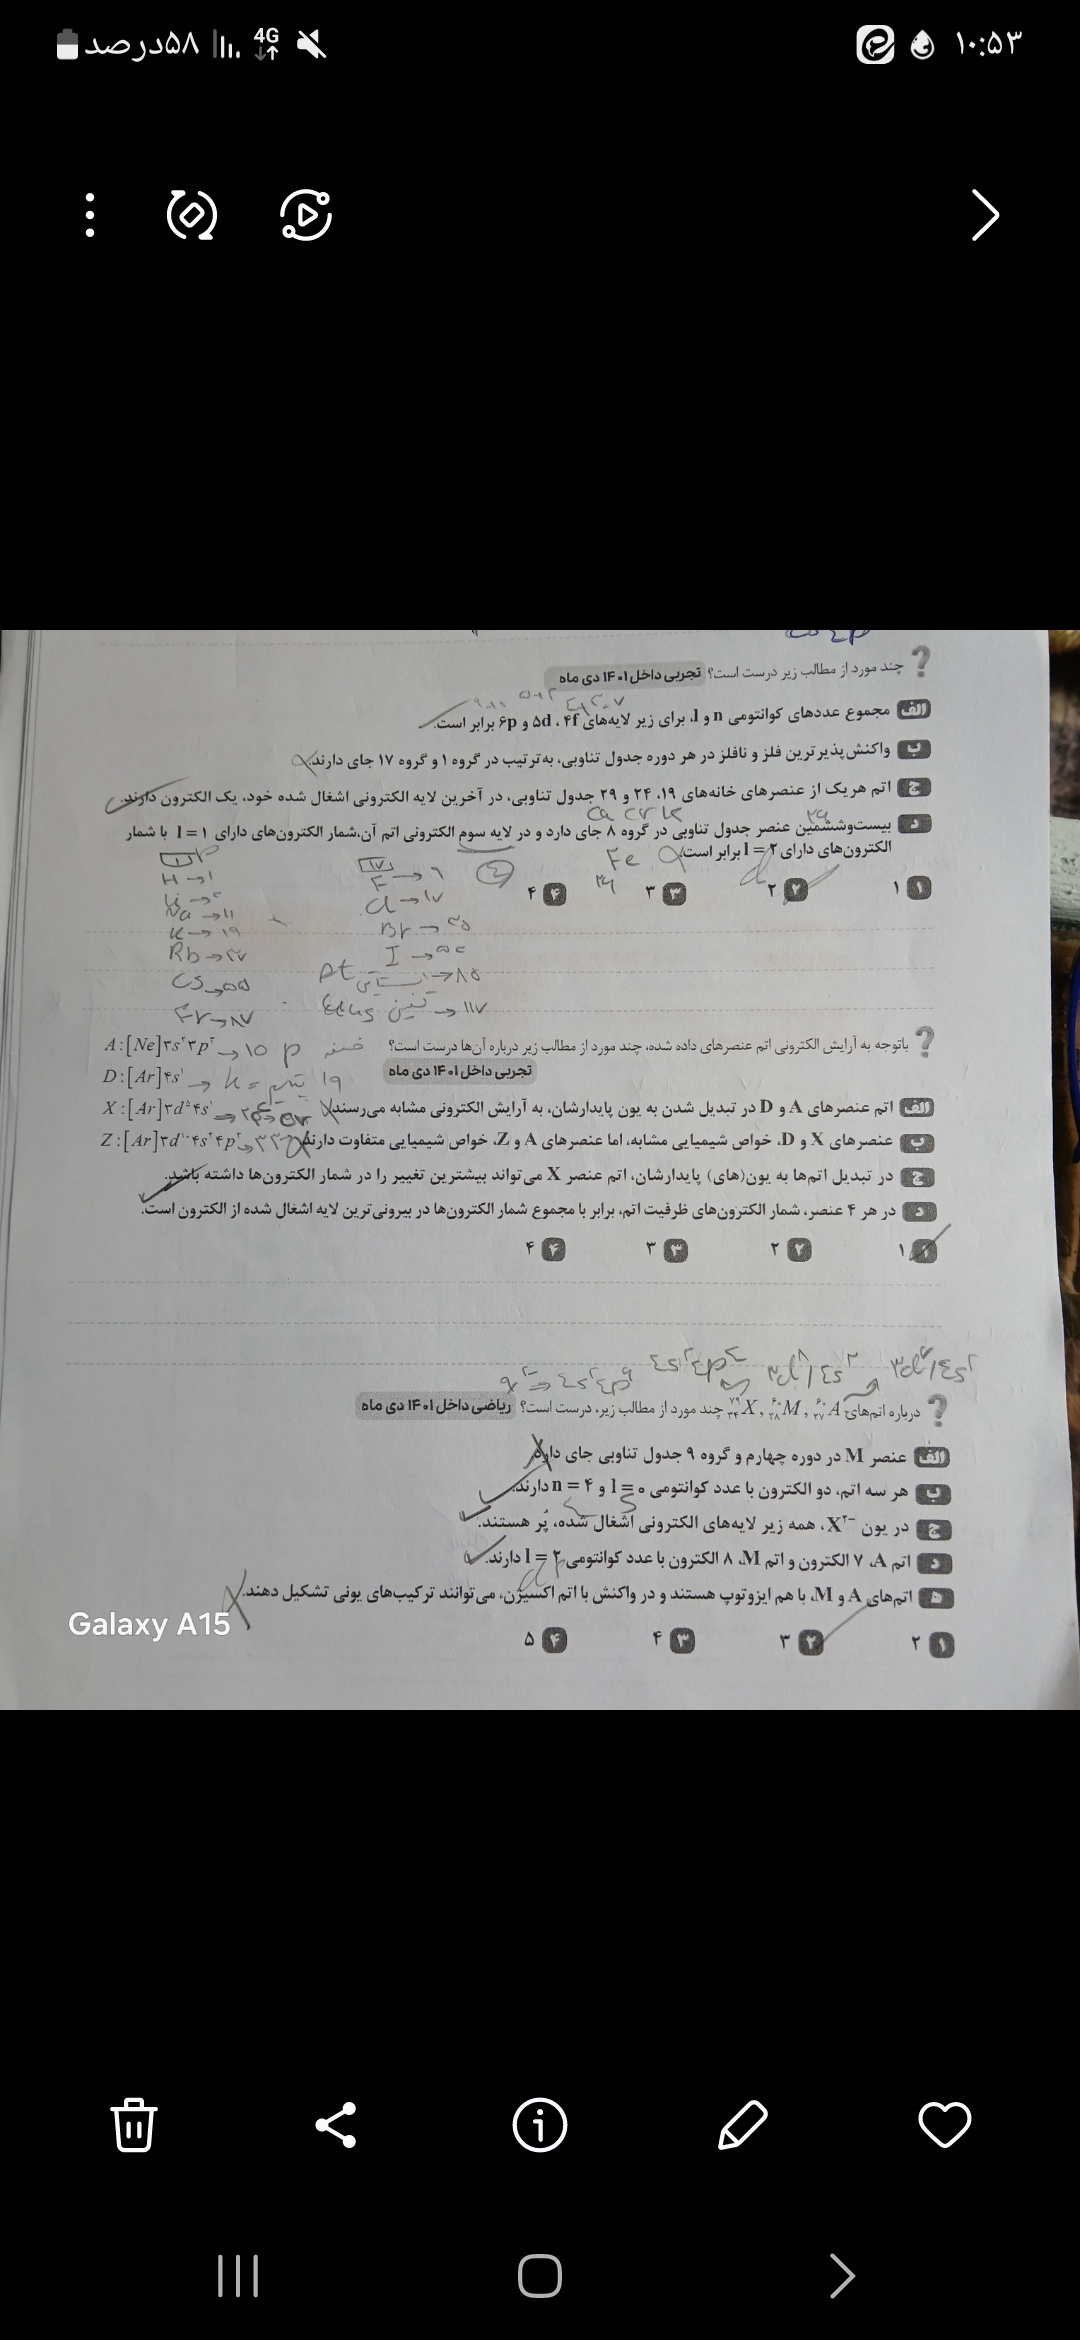 ۱۰:۵۳
4G
۵۸درصد
چند مورد از مطالب زیر درست است؟ تجربی داخل ۱۴۰۱ دی ماه
الف مجموع عددهای کوانتومی n و l، برای زیر لایه‌های ۴f، ۵d و ۶p برابر است.
ب واکنش‌پذیرترین فلز و نافلز در هر دوره جدول تناوبی، به‌ترتیب در گروه ۱ و گروه ۱۷ جای دارند.
ج اتم هریک از عنصرهای خانه‌های ۱۹، ۲۴ و ۲۹ جدول تناوبی، در آخرین لایه الکترونی اشغال شده خود، یک الکترون دارند.
د بیست‌وششمین عنصر جدول تناوبی در گروه ۸ جای دارد و در لایه سوم الکترونی اتم آن،شمار الکترون‌های دارای l = ۱ با شمار
الکترون‌های دارای l = ۲ برابر است.
Fe
۱ ۱
۲ ۲
۳ ۳
۴ ۴
۱۷
H → ۱
F → ۹
Na → ۱۱
Cl → ۱۷
K → ۱۹
Br → ۳۵
Rb → ۳۷
I →
Cs → ۵۵
At → ۸۵
Fr → ۸۷
تنسین → ۱۱۷
باتوجه به آرایش الکترونی اتم عنصرهای داده شده، چند مورد از مطالب زیر درباره آن‌ها درست است؟
تجربی داخل ۱۴۰۱ دی ماه
A:[Ne]۳s²۳p³ → ۱۵ P
D:[Ar]۴s¹ → K = پتاسیم ۱۹
X:[Ar]۳d⁵۴s¹
Z:[Ar]۳d¹⁰۴s²۴p³ → ۳۳
الف اتم عنصرهای A و D در تبدیل شدن به یون پایدارشان، به آرایش الکترونی مشابه می‌رسند.
ب عنصرهای X و D، خواص شیمیایی مشابه، اما عنصرهای A و Z، خواص شیمیایی متفاوت دارند.
ج در تبدیل اتم‌ها به یون(های) پایدارشان، اتم عنصر X می‌تواند بیشترین تغییر را در شمار الکترون‌ها داشته باشد.
د در هر ۴ عنصر، شمار الکترون‌های ظرفیت اتم، برابر با مجموع شمار الکترون‌ها در بیرونی‌ترین لایه اشغال شده از الکترون است.
۱ ۱
۲ ۲
۳ ۳
۴ ۴
۳d⁷/۴s²
۳d⁸/۴s²
۴s²۴p⁴
۴s²۴p⁶
درباره اتم‌های ⁶⁰₂₇A , ⁶⁰₂₈M , ⁷⁹₃₄X چند مورد از مطالب زیر، درست است؟ ریاضی داخل ۱۴۰۱ دی ماه
الف عنصر M در دوره چهارم و گروه ۹ جدول تناوبی جای دارد.
ب هر سه اتم، دو الکترون با عدد کوانتومی l = ۰ و n = ۴ دارند.
ج در یون X²⁻، همه زیر لایه‌های الکترونی اشغال شده، پُر هستند.
د اتم A، ۷ الکترون و اتم M، ۸ الکترون با عدد کوانتومی l = ۲ دارند.
ه اتم‌های A و M، با هم ایزوتوپ هستند و در واکنش با اتم اکسیژن، می‌توانند ترکیب‌های یونی تشکیل دهند.
۱ ۲
۲ ۳
۳ ۴
۴ ۵
Galaxy A15